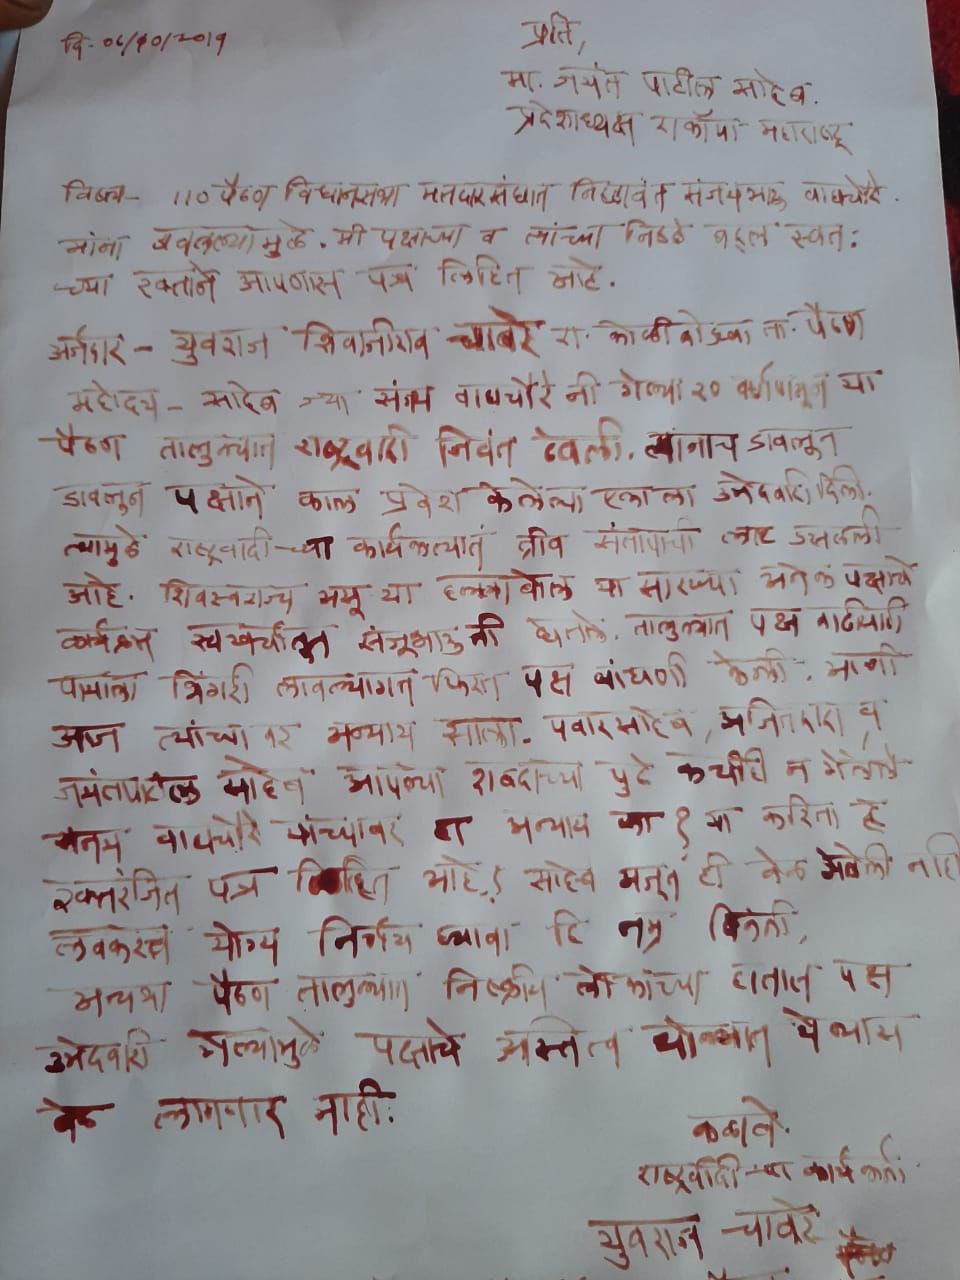 दि- ०६/१०/२०१९
प्रति,
मा. जयंत पाटील साहेब.
प्रदेशाध्यक्ष राकॉपा महाराष्ट्र
विषय- ११० पैठण विधानसभा मतदारसंघात निष्ठावंत संजयभाऊ वाघचौरे
यांना डावलल्यामुळे. मी पक्षाच्या व त्यांच्या निष्ठे बद्दल स्वत:
च्या रक्ताने आपणास पत्र लिहित आहे.
अर्जदार - युवराज शिवाजीराव चावरे रा. कोळी बोडखा ता. पैठण
महोदय - साहेब ज्या संजय वाघचौरे नी गेल्या २० वर्षापासून या
पैठण तालुक्यात राष्ट्रवादी जिवंत ठेवली. त्यांनाच डावलून
डावलून पक्षाने काल प्रवेश केलेल्या उमेदवारी दिली.
त्यामुळे राष्ट्रवादी च्या कार्यकर्त्यात तीव्र संतापाची लाट उसळली
आहे. शिवस्वराज्य या हल्लाबोल या सारख्या अनेक पक्षाचे
कार्यक्रम स्वखर्चातून संजूभाऊ नी घेतले. तालुक्यात पक्ष वाढीसाठी
पायाला भिंगरी लावल्यागत फिरत पक्ष बांधणी केली. आणी
आज त्यांच्या वर अन्याय झाला. पवारसाहेब, अजितदादा, व
जयंतपाटील साहेब आपल्या शब्दाच्या पुढे कधीही न गेलेले
संजय वाघचौरे यांच्यावर हा अन्याय का? या करिता हे
रक्तरंजित पत्र लिहित आहे! साहेब अजून ही वेळ गेलेली नाही
लवकरच योग्य निर्णय घ्यावा हि नम्र विनंती,
अन्यथा पैठण तालुक्यात निष्क्रीय लोकांच्या हातात पक्ष
उमेदवारी गेल्यामुळे पक्षाचे अस्तित्व धोक्यात येण्यास
वेळ लागणार नाही.
कळावे.
राष्ट्रवादी चा कार्यकर्ता
युवराज चावरे